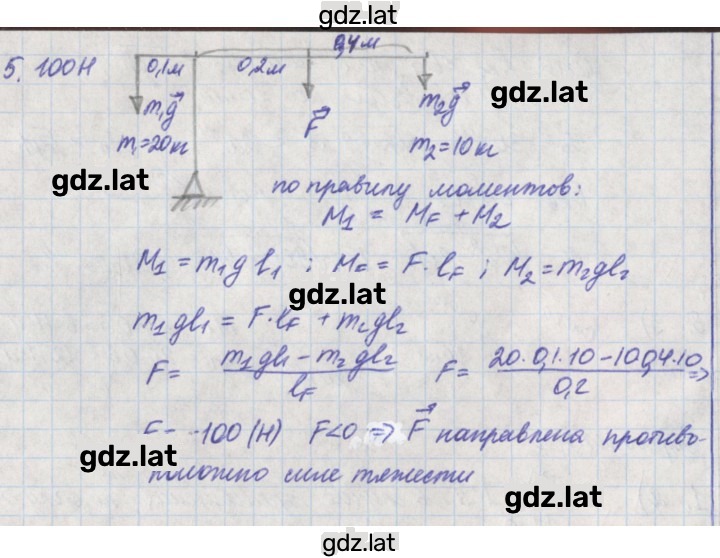 gdz.lat
0,4м
5. 100Н 0,1м 0,2м
gdz.lat
m₁g⃗ F⃗ m₂g⃗
m₁=20кг m₂=10кг
gdz.lat
по правилу моментов:
M₁ = M_F + M₂
M₁ = m₁gl₁ ; M_F = F·l_F ; M₂ = m₂gl₂
gdz.lat
m₁gl₁ = F·l_F + m₂gl₂
F = (m₁gl₁ − m₂gl₂)/l_F F = (20·0,1·10−10·0,4·10)/0,2 ⇒
F = -100 (Н) F<0 ⇒ F⃗ направлена противо-
gdz.lat
положно силе тяжести
gdz.lat
gdz.lat